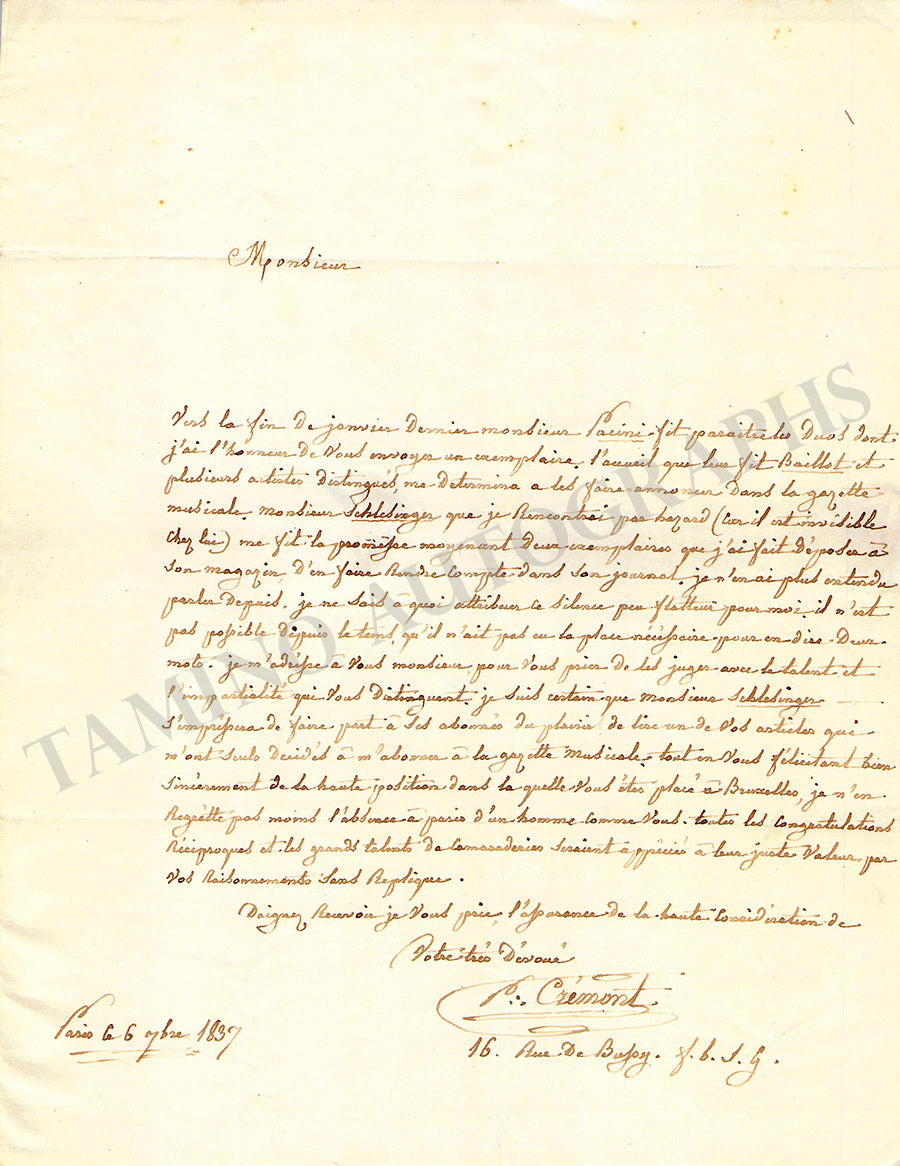 Monsieur
Vers la fin de janvier dernier monsieur Pacini fit paraitre les Duos dont
j'ai l'honneur de vous envoyer un exemplaire. l'accueil que leur fit Baillot et
plusieurs artistes distingués, me determina a les faire annoncer dans la gazette
musicale. monsieur Schlesinger que je Rencontrai par hazard (car il est invisible
chez lui) me fit la promesse moyenant deux exemplaires que j'ai fait déposer à
son magazin, d'en faire Rendre Compte dans son journal. je n'en ai plus entendu
parler depuis. je ne sais à quoi attribuer ce silence peu flatteur pour moi. il n'est
pas possible depuis le tems, qu'il n'ait pas eu la place nécessaire pour en dire deux
mots. je m'adrèsse à vous monsieur pour vous prier de les juger avec le talent et
l'impartialité qui vous distinguent. je suis certain que monsieur Schlesinger
s'empréssera de faire part à ses abonnés du plaisir de lire un de vos articles qui
m'ont seuls décidés à m'abonner à la gazette musicale. tout en vous félicitant bien
sincèrement de la haute position dans la quelle vous êtes placé à Bruxelles, je n'en
Regrètte pas moins l'absence à paris d'un homme comme vous. toutes les congratulations
Réciproques et les grands talents de camaraderies seraient appréciés à leur juste valeur, par
vos Raisonnements sans Replique.
Daignez Recevoir je vous prie, l'assurance de la haute considération de
Votre très Dévoué
P. Crémont.
Paris le 6 7bre 1837
16. Rue De Bussy. f. b. S. G.
TAMINO AUTOGRAPHS